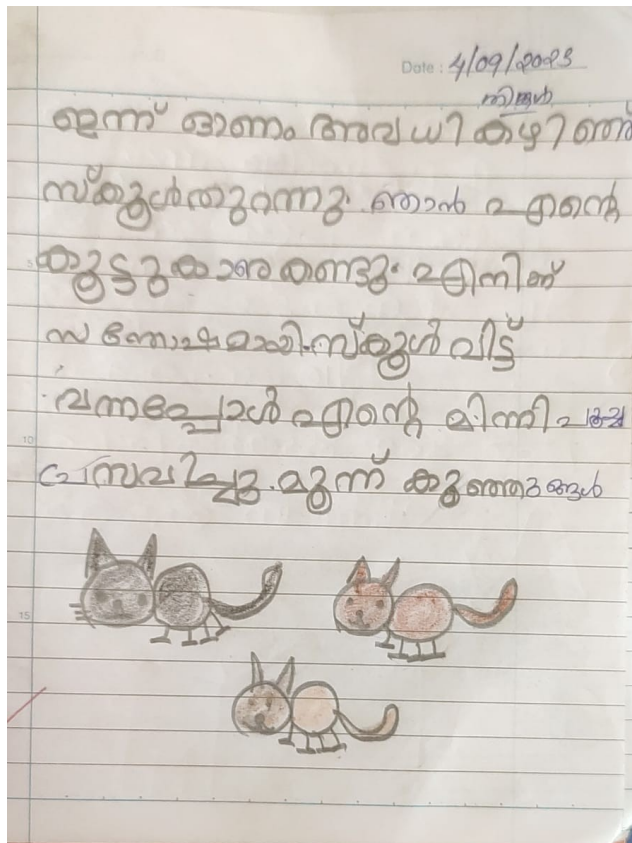 Date : 4/09/2023
തിങ്കൾ
ഇന്ന് ഓണം അവധി കഴിഞ്ഞ്
സ്കൂൾതുറന്നു. ഞാൻ എൻ്റെ
കൂട്ടുകാരെ കണ്ടു. എനിക്ക്
സന്തോഷമായി. സ്കൂൾ വിട്ട്
വന്നപ്പോൾ എൻ്റെ മിന്നി പൂച്ച
പ്രസവിച്ചു. മൂന്ന് കുഞ്ഞുങ്ങൾ
5
10
15